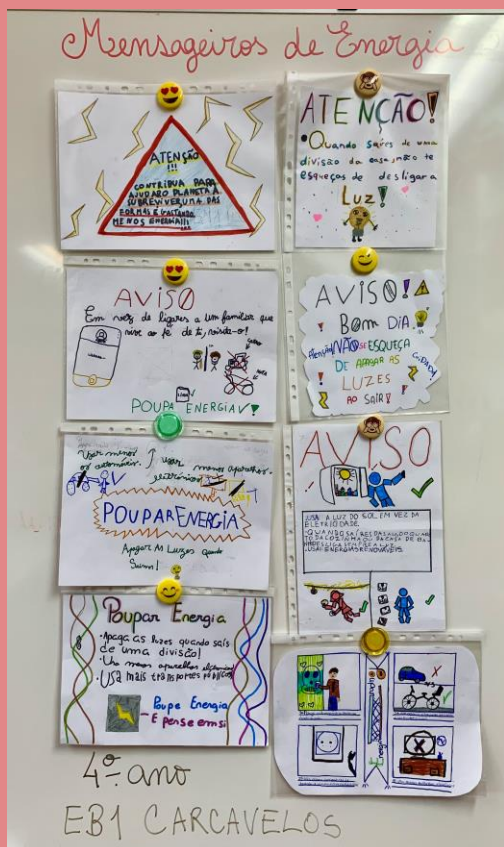 Mensageiros de Energia
ATENÇÃO
!!!
CONTRIBUA PARA
AJUDAR O PLANETA A
SUBREVIVER, UMA DAS
FORMAS É GASTANDO
MENOS ENERGIA!!!
ATENÇÃO!
Quando saíres de uma
divisão da casa, não te
esqueças de desligar a
Luz!
AVISO
Em vez de ligares a um familiar que
vive ao pé de ti, visita-o!
POUPA ENERGIA!
AVISO!
BOM DIA
Atenção! NÃO SE ESQUEÇA
DE APAGAR AS
LUZES
AO SAIR!
Usar menos
os automóveis.
usar menos aparelhos
eletrónicos
POUPAR ENERGIA
Apagar As Luzes quando
Saimos!
AVISO
USA A LUZ DO SOL EM VEZ DA
ELETRICIDADE.
Poupar Energia
Apaga as luzes quando sais
de uma divisão!
Usa menos aparelhos
Usa mais transportes públicos
Poupe Energia
E pense em si
4º ano
EB1 CARCAVELOS